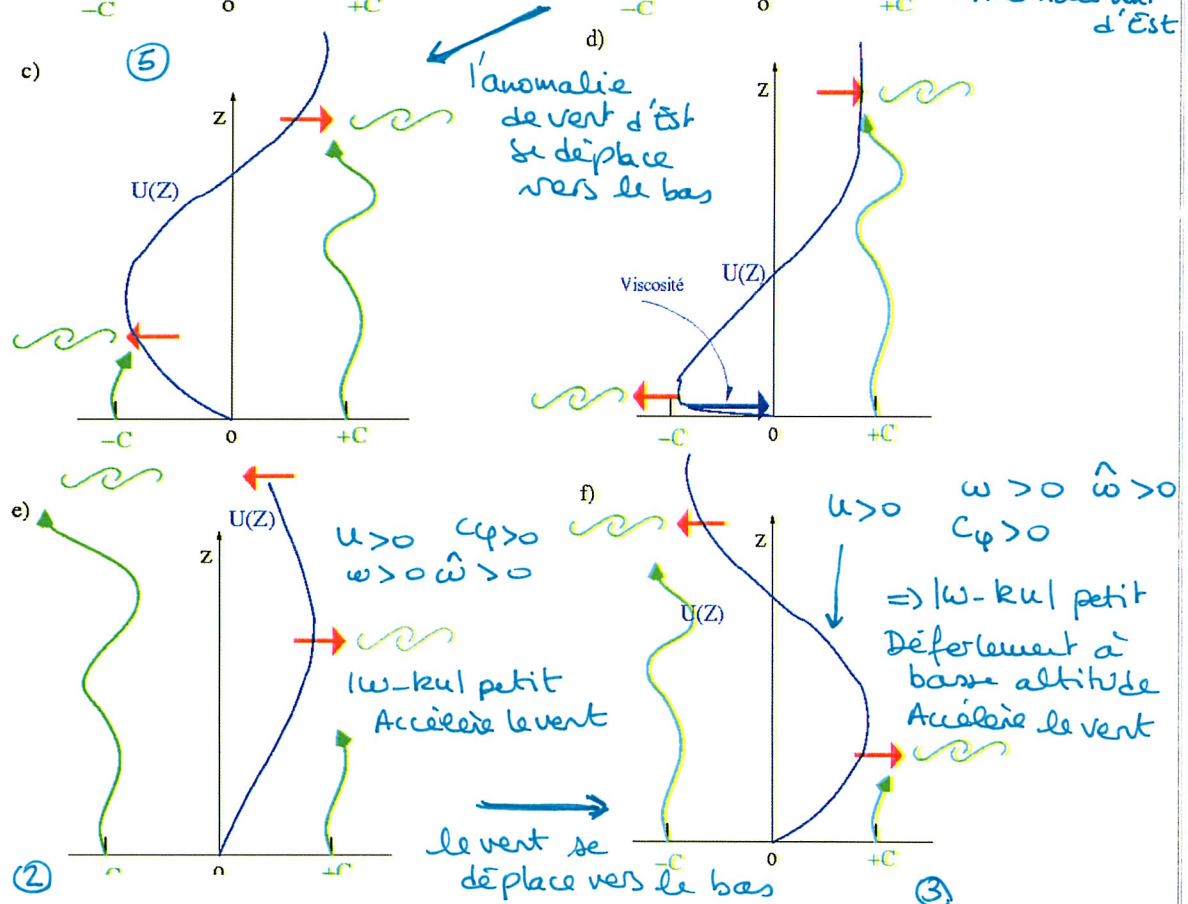 -C 0 +C
-C 0 +C
d'Est
c)
5
d)
l'anomalie
de vent d'Est
se déplace
vers le bas
Z
U(Z)
-C 0 +C
Z
U(Z)
Viscosité
-C 0 +C
e)
U(Z)
Z
u>0 cφ>0
ω>0 ω̂>0
|ω-ku| petit
Accélère le vent
0
2
le vent se
déplace vers le bas
f)
Z
U(Z)
u>0
ω>0 ω̂>0
Cφ>0
=> |ω-ku| petit
Déferlement à
basse altitude
Accélère le vent
-C 0 +C
3